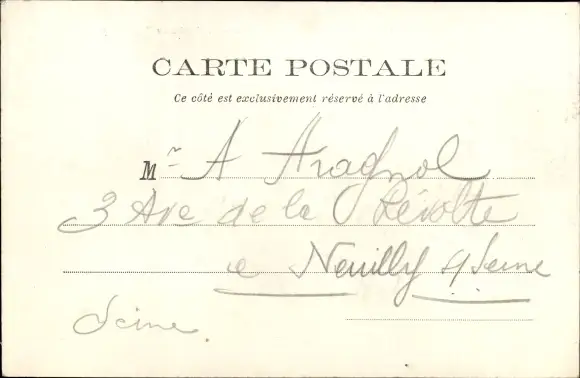 CARTE POSTALE
Ce côté est exclusivement réservé à l'adresse
Mr A Aragnol
3 Ave de la Révolte
à Neuilly s/Seine
Seine.